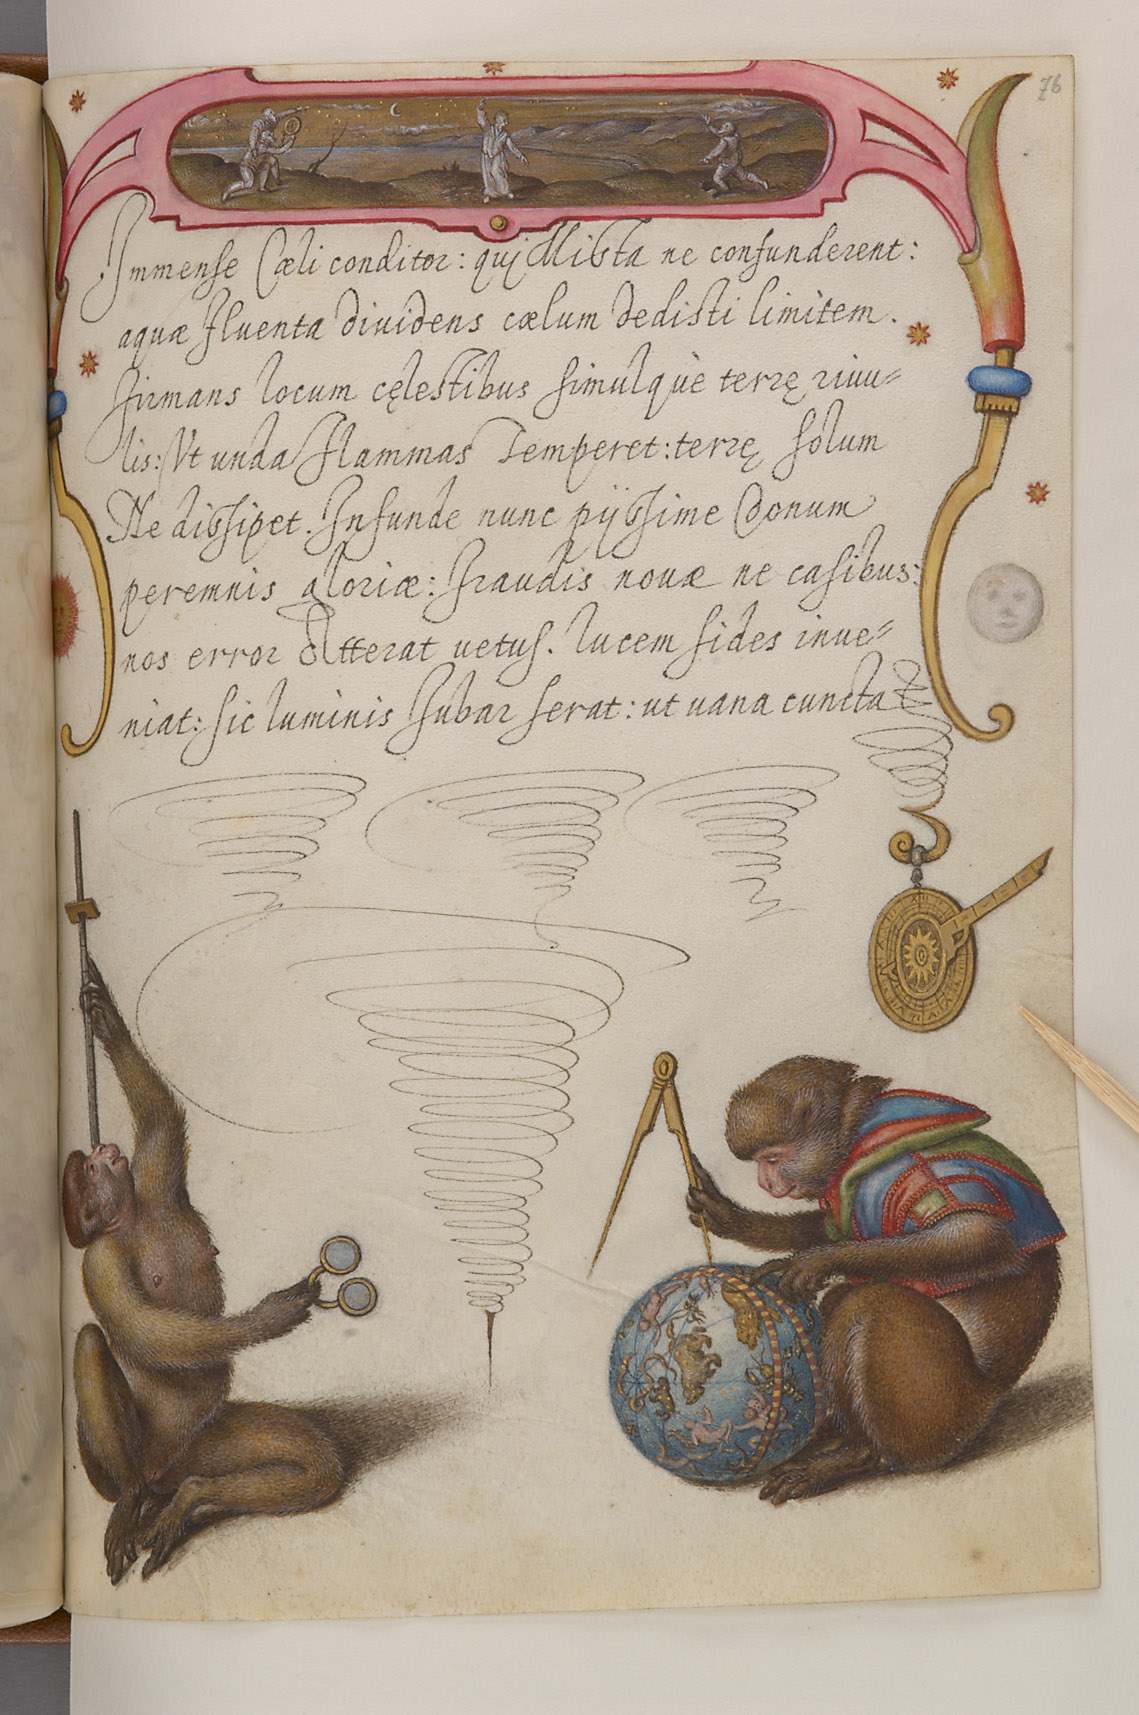 76
Immense Cœli conditor: qui Mista ne confunderent:
aquæ fluenta diuidens cœlum dedisti limitem.
firmans locum cęlestibus simulquè terrę riuu=
lis: Vt unda flammas Temperet: terrę solum
Ne dissipet. Infunde nunc pijssime Donum
peremnis gloriæ: fraudis nouæ ne casibus:
nos error Atterat uetus. lucem fides inue=
niat: sic luminis Iubar ferat: ut uana cuncta &